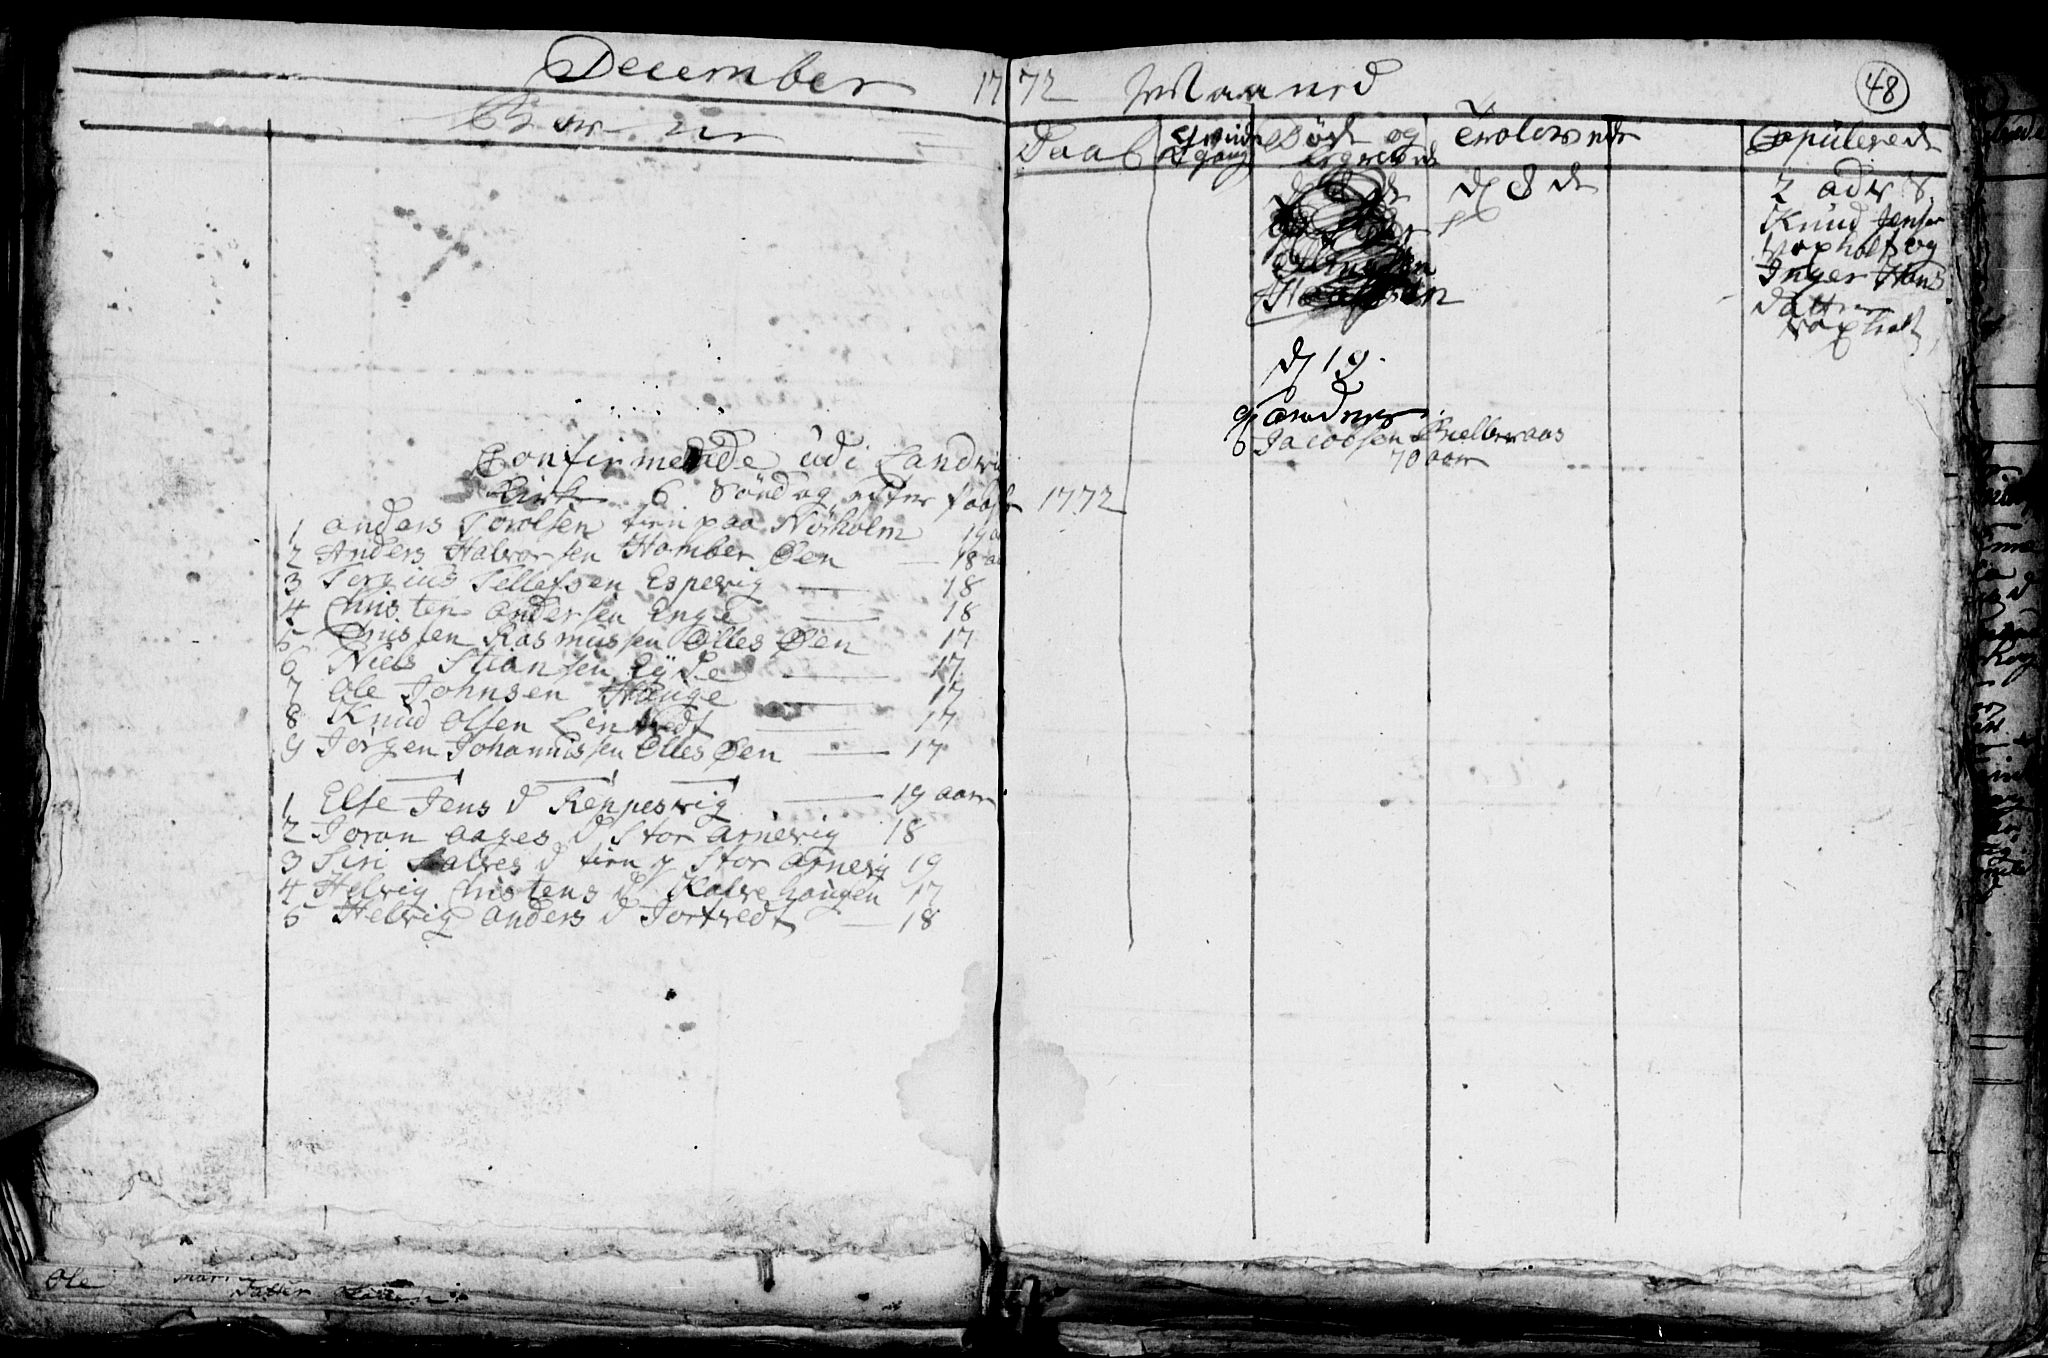 December 1772 Maaned
48
Daab
Døde og
Trolovede
Copulerede
d 8 de
2 Adv S.
Knud Jensen
Voxholt og
Inger Hans
Datter
Voxholt
d 19
Jacobsen
70 aar
Confirmerede udi Landvig
Kirke 6 Søndag efter Paaske 1772
1 Anders Torolsen tien paa Nørholm 19 a
2 Anders Halvorsen Homber Øen — 18 aa
3 Torgius Tellefsen Espevig — 18
4 Christen Andersen Enge — 18
5 Christen Rasmussen Olles Øen 17
6 Niels Stiansen Eyde — 17
7 Ole Johnsen Hauge — 17
8 Knud Olsen Lintvedt — 17
9 Jørgen Johannissen Olles Øen — 17
1 Else Jens d Renpesvig — 19 aar
2 Joron Aages d Stor Arnevig 18
3 Siri Salves d tien p Stor Arnevig 19
4 Helvig Christens d Kalvehaugen 17
5 Helvig Anders d Jortvedt — 18
Ole
Datter